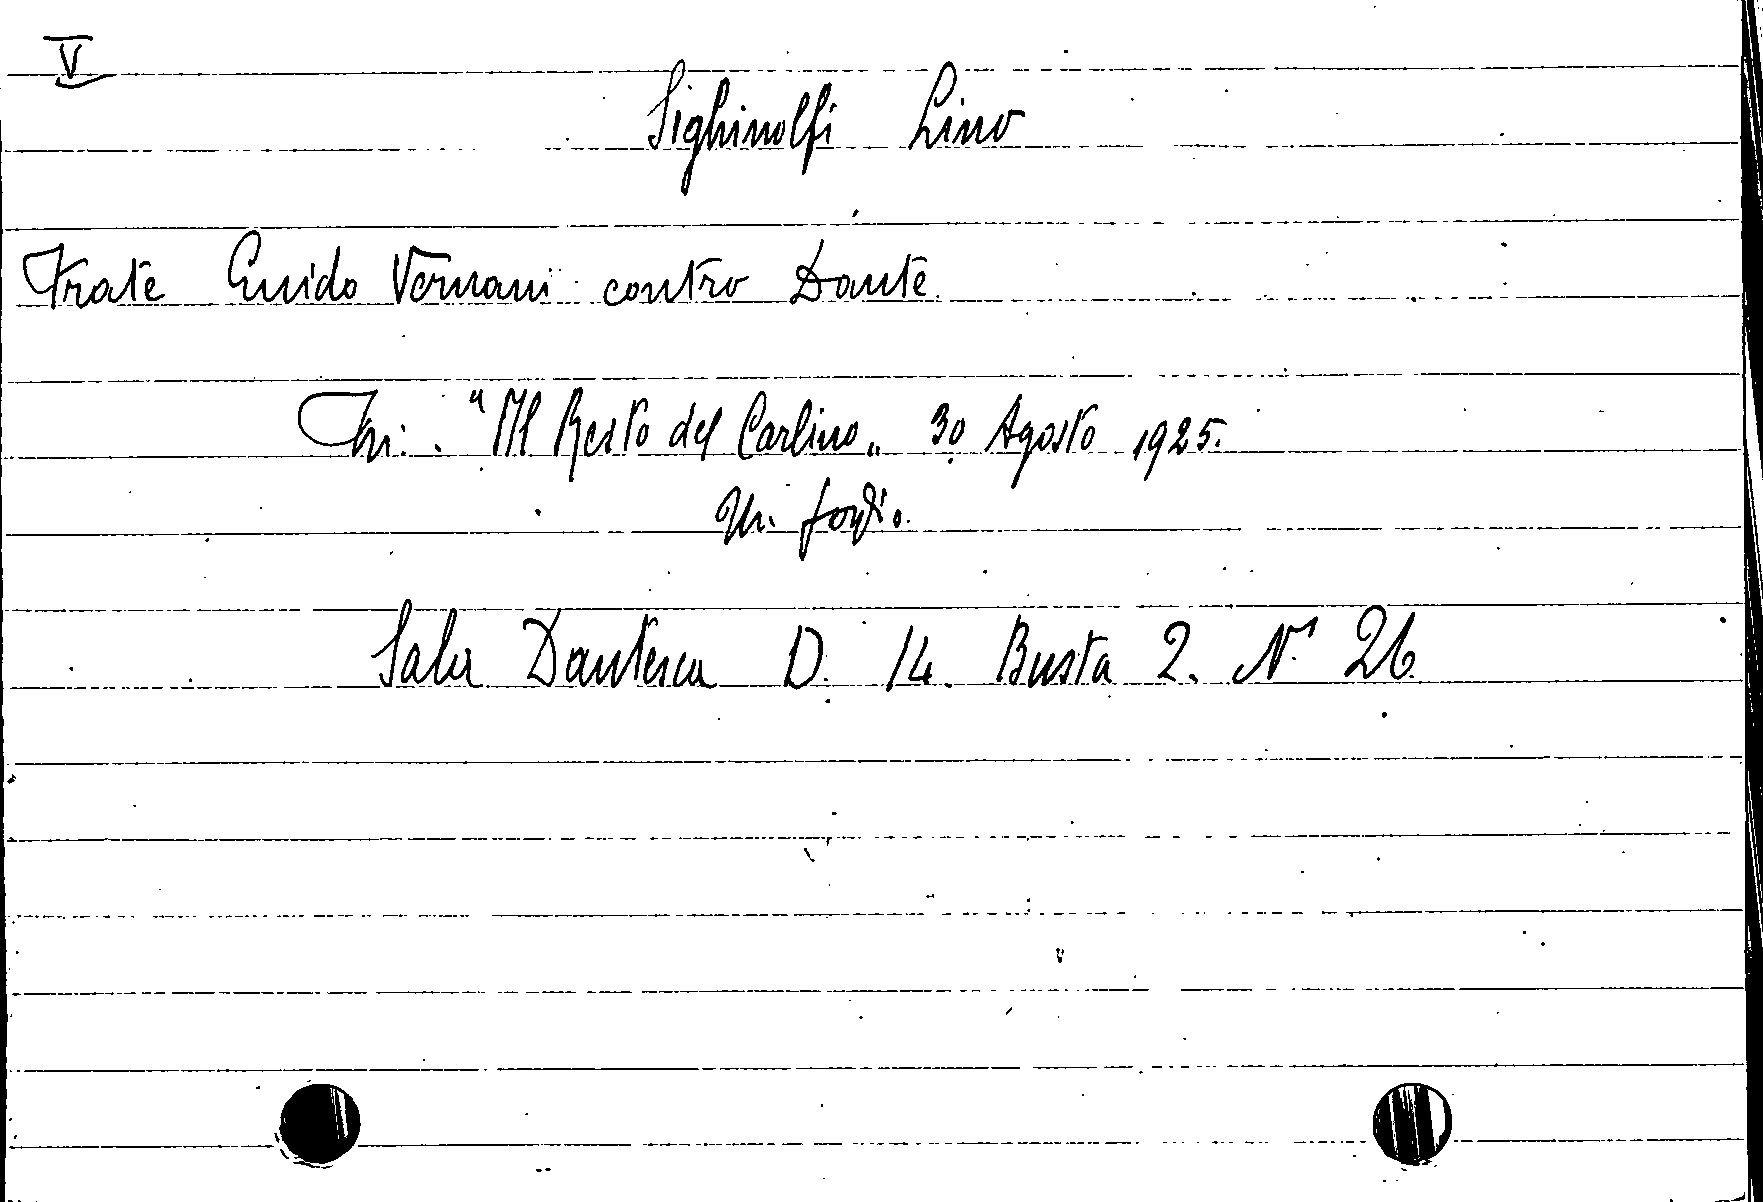 V
Sighinolfi Lino
Frate Guido Vernani contro Dante.
In: "Il Resto del Carlino„ 30 Agosto 1925.
Un fogl.
Sala Dantesca D. 14. Busta 2. N. 26.